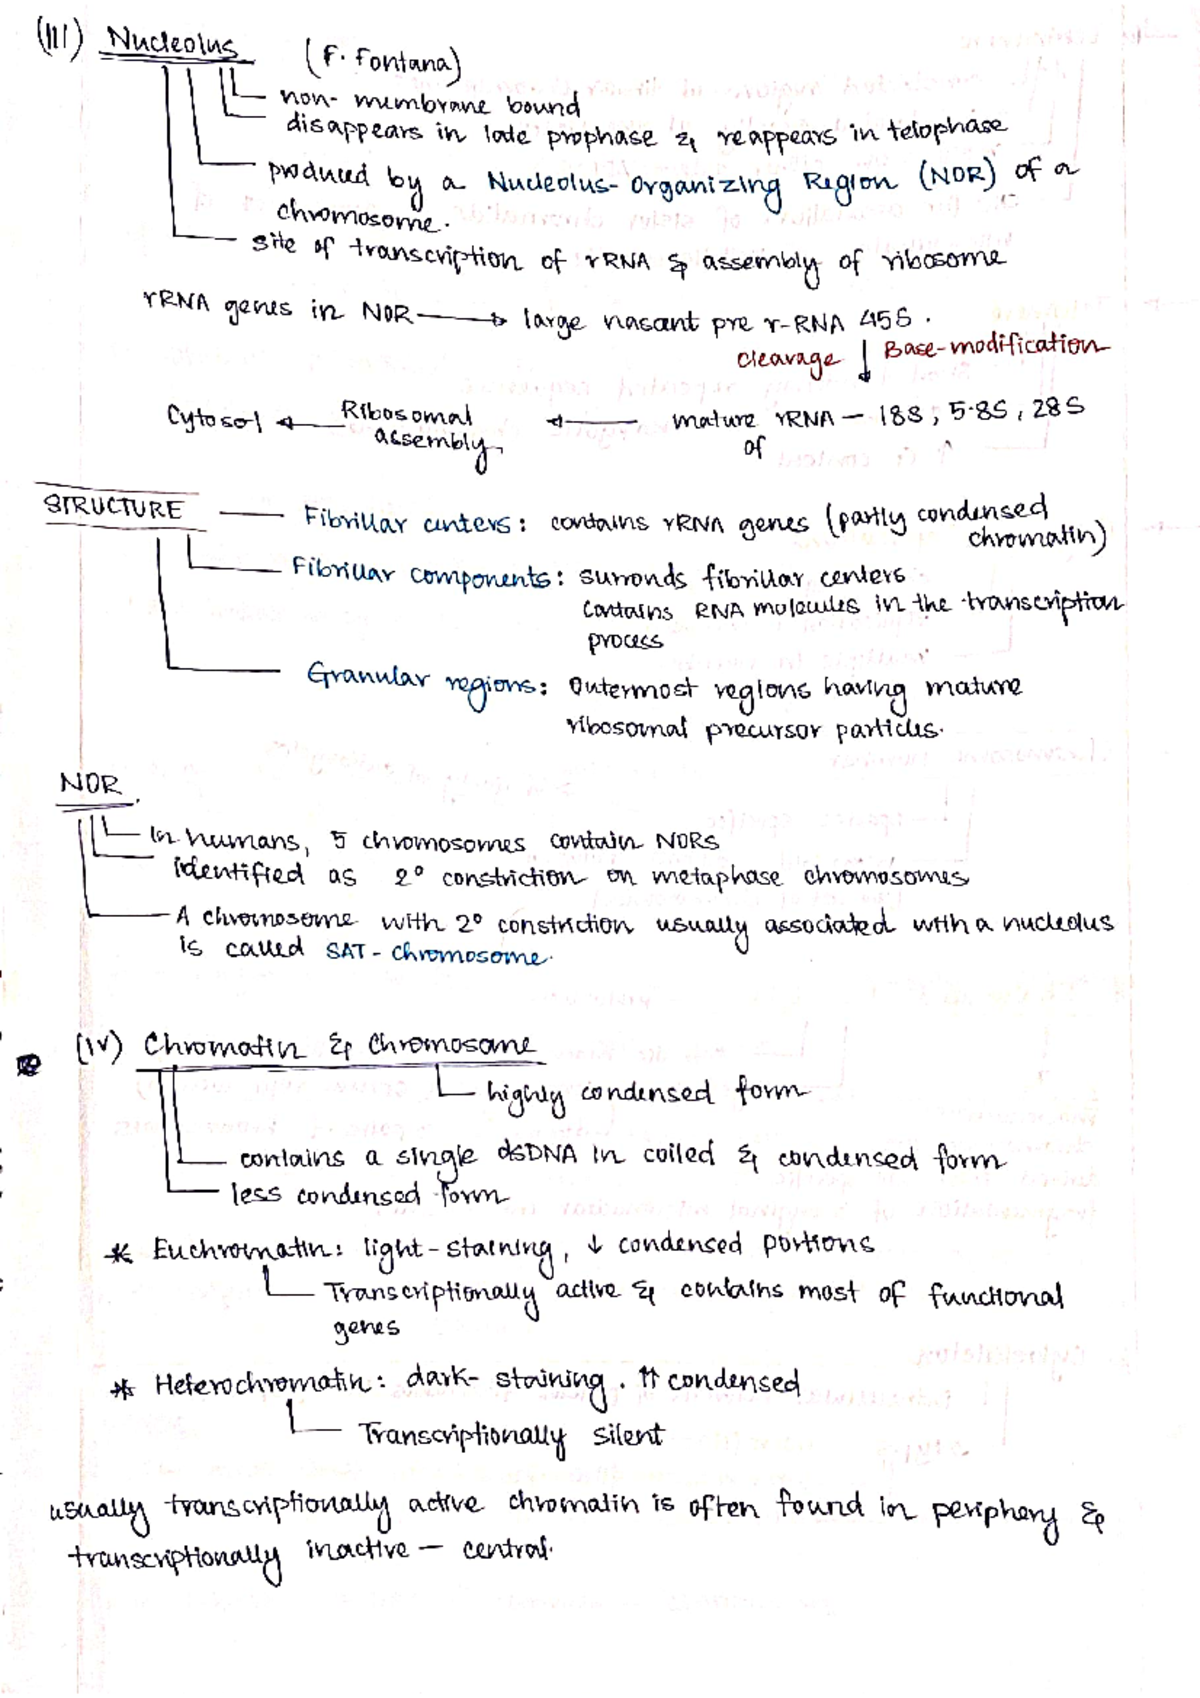 (III) Nucleolus (F. Fontana)
non-membrane bound
disappears in late prophase & reappears in telophase
produced by a Nucleolus-Organizing Region (NOR) of a
chromosome.
site of transcription of rRNA & assembly of ribosome
rRNA genes in NOR → large nascent pre r-RNA 45S.
cleavage ↓ Base-modification
Cytosol ← Ribosomal ← mature rRNA — 18S, 5.8S, 28S
assembly of
STRUCTURE — Fibrillar centers: contains rRNA genes (partly condensed
chromatin)
Fibrillar components: surronds fibrillar centers
contains RNA molecules in the transcription
process
Granular regions: Outermost regions having mature
ribosomal precursor particles.
NOR
In humans, 5 chromosomes contain NORs
identified as 2° constriction on metaphase chromosomes
A chromosome with 2° constriction usually associated with a nucleolus
is called SAT-chromosome.
(IV) Chromatin & Chromosome
highly condensed form
contains a single dsDNA in coiled & condensed form
less condensed form
* Euchromatin: light-staining, ↓ condensed portions
Transcriptionally active & contains most of functional
genes
* Heterochromatin: dark-staining. ↑↑ condensed
Transcriptionally silent
usually transcriptionally active chromatin is often found in periphery &
transcriptionally inactive — central.